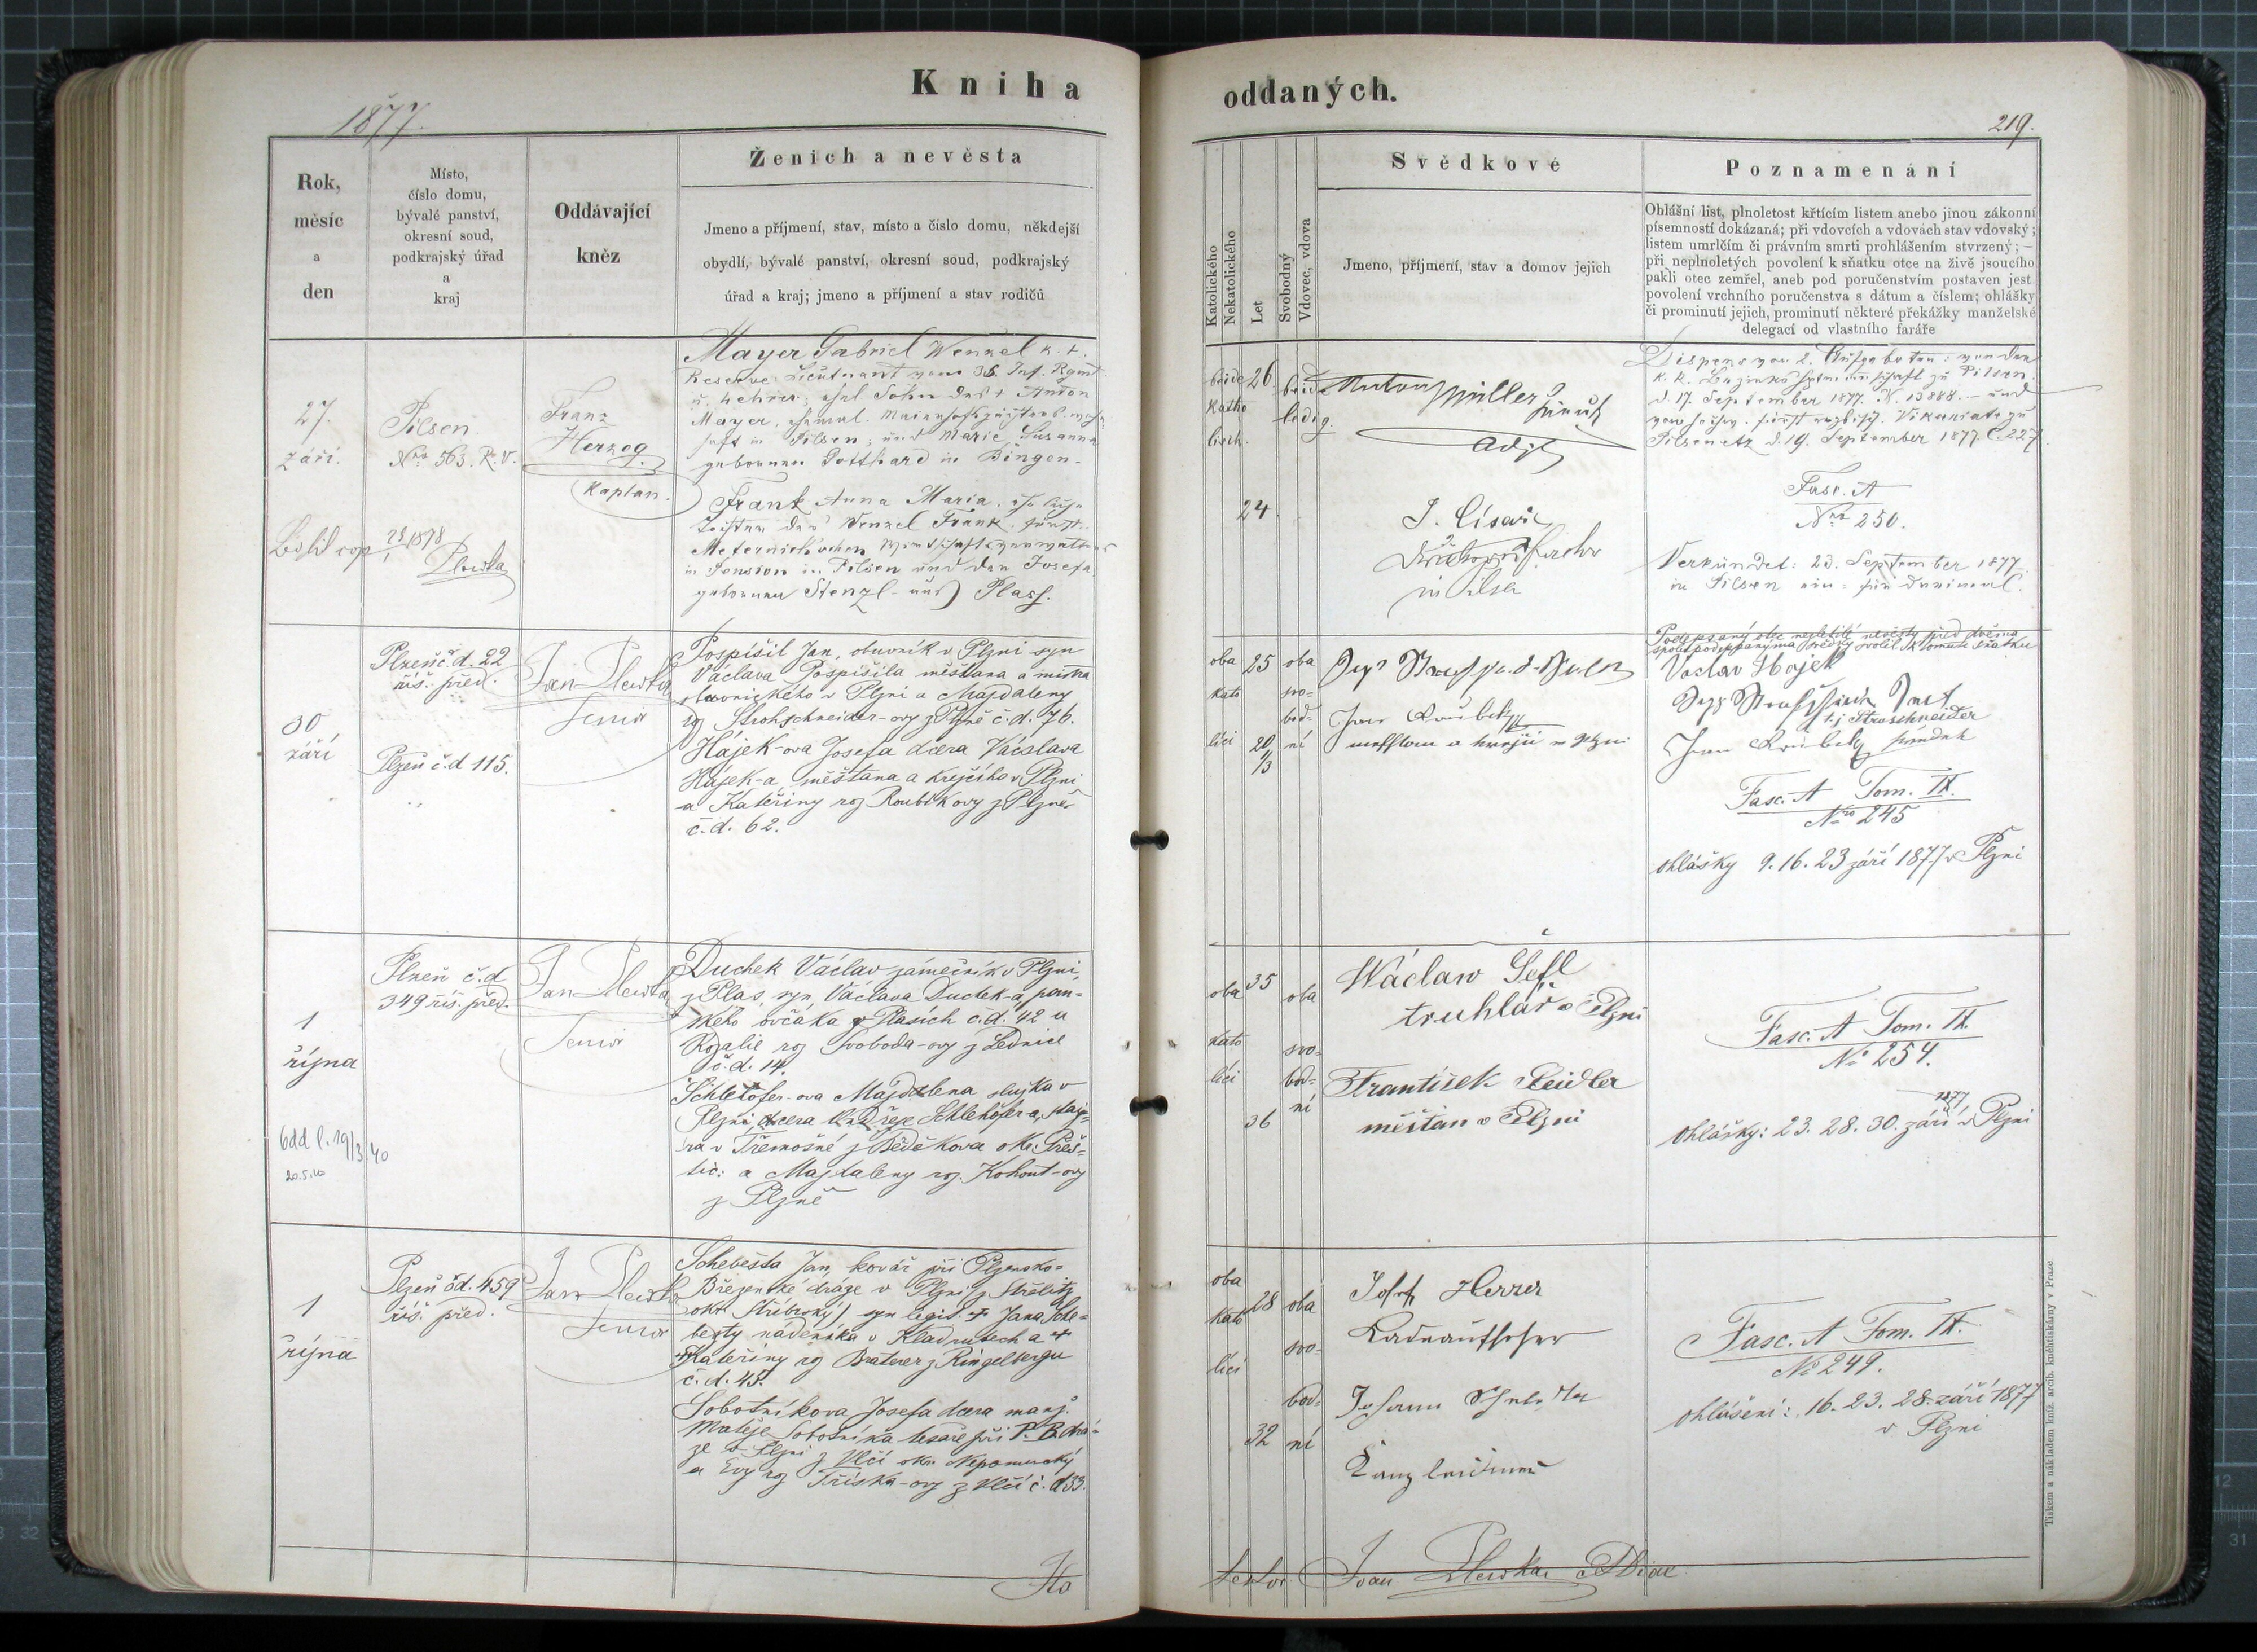 Kniha
1877.
Rok,
měsíc
a
den
Místo,
číslo domu,
bývalé panství,
okresní soud,
podkrajský úřad
a
kraj
Oddávající
kněz
Ženich a nevěsta
Jmeno a příjmení, stav, místo a číslo domu, někdejší
obydlí, bývalé panství, okresní soud, podkrajský
úřad a kraj; jmeno a příjmení a stav rodičů
27.
září.
Pilsen
Nro 563. R. V.
Franz
Herzog
Kaplan.
Mayer Gabriel Wenzel k. k.
Reserve Lieutenant vom 35. Inf. Rgmt
u. Lehrer; ehel. Sohn des † Anton
Mayer, ehemal.
in Pilsen; und Marie Susanna
geborenen Gotthard in Bingen.
Frank Anna Maria, eheliche
Tochter des Wenzel Frank, fürst.
Meternich'schen Wirthschaftsverwalters
in Pension in Pilsen und der Josefa
geborenen Stenzl - aus Plass.
1878
30
září
Plzeň č. d. 22
říš. před.
Plzeň č. d 115.
Jan Plewka
Senior
Pospíšil Jan, obuvník v Plzni syn
Václava Pospíšila měštana a mistra
obuvnického v Plzni a Majdaleny
roz Strohschneider-ovy z Plzně č. d. 76.
Hájek-ova Josefa dcera Václava
Hájek-a měštana a krejčího v Plzni
a Kateřiny roz Roubíkovy z Plzně
č. d. 62.
1
října
Plzeň č. d
349 říš. před.
Jan Plewka
Senior
Duchek Václav zámečník v Plzni,
z Plas, syn Václava Duchek-a, pan-
ského ovčáka v Plasích č. d. 42 a
Rozalie roz Svoboda-ovy z Lednice
č. d. 14.
Schlehöfer-ova Majdalena služka v
Plzni, dcera Ondřeje Schlehöfer-a,
ra v Třemošné z okr. Přeš-
tic: a Majdaleny roz. Kohout-ovy
z Plzně
odd l. 19/3 40
20.5.40
1
října
Plzeň čd. 459
říš. před.
Jan Plewka
Senior
Schebesta Jan, kovář při Plzensko-
Březenské dráze v Plzni (z Střelitz
okr. Stříbrský) syn legit. † Jana Sche-
besty nádeníka v Kladrubech a †
Kateřiny roz Braterer z Ringelbergu
č. d. 45.
Sobotníkova Josefa dcera manž.
Matěje Sobotníka tesaře při P. B. drá-
ze v Plzni z Vlčí okr. Nepomucký
a Evy roz Tříska-ovy z Vlčí č. d 33.
Ita
oddaných.
219.
Katolického
Nekatolického
Let
Svobodný
Vdovec, vdova
Svědkové
Jmeno, příjmení, stav a domov jejich
Poznamenání
Ohlášní list, plnoletost křtícím listem anebo jinou zákonní
písemností dokázaná; při vdovcích a vdovách stav vdovský;
listem umrlčím či právním smrti prohlášením stvrzený; —
při neplnoletých povolení k sňatku otce na živě jsoucího
pakli otec zemřel, aneb pod poručenstvím postaven jest
povolení vrchního poručenstva s dátum a číslem; ohlášky
či prominutí jejich, prominutí některé překážky manželské
delegací od vlastního faráře
beide
katho
lisch.
26
24
beide
ledig.
Anton Müller
J. Císař
in Pilsen
Dispens von 2. Aufgeboten: von der
k. k. Bezirkshauptmannschaft zu Pilsen.
d. 17. September 1877. N. 13888. - und
Vikariate zu
Pilsenetz d. 19. September 1877. č. 227.
Fasc. A
Nro 250.
Verkündet: 23. September 1877
in Pilsen ein: für dreimal.
oba
kato
líci
25
20
oba
svo-
bod-
ní
Jan Roubík
Podepsaný otec nezletilé nevěsty před dvěma
spolupodepsanýma svědky svolil k tomuto sňatku
Vaclav Hajek
t. j Stroschneider
Jan Roubík
Fasc. A Tom. IX.
Nro 245
ohlášky 9. 16. 23 září 1877 v Plzni
oba
kato
líci
35
36
oba
svo-
bod-
ní
Wáclaw Šefl
truhlář v Plzni
František Seidler
měštan v Plzni
Fasc. A Tom. IX.
No 254.
ohlášky: 23. 28. 30. září 1877 v Plzni
oba
kato
líci
28
32
oba
svo-
bod-
ní
Josef Herrer
Johann
Fasc. A Tom. IX.
No 249.
ohlášení: 16. 23. 28. září 1877
v Plzni
testor Joan Plewka
Tiskem a nákladem kníž. arcib. kněhtiskárny v Praze